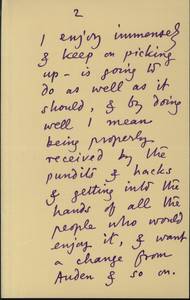 2
I enjoy immensely
& keep on picking
up – is going to
do as well as it
should, & by doing
well I mean
being properly
received by the
pundits & hacks
& getting into the
hands of all the
people who would
enjoy it, & want
a change from
Auden & so on.